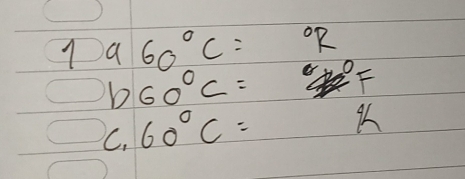 1 a 60°C = °R
b 60°C = °F
c. 60°C = K